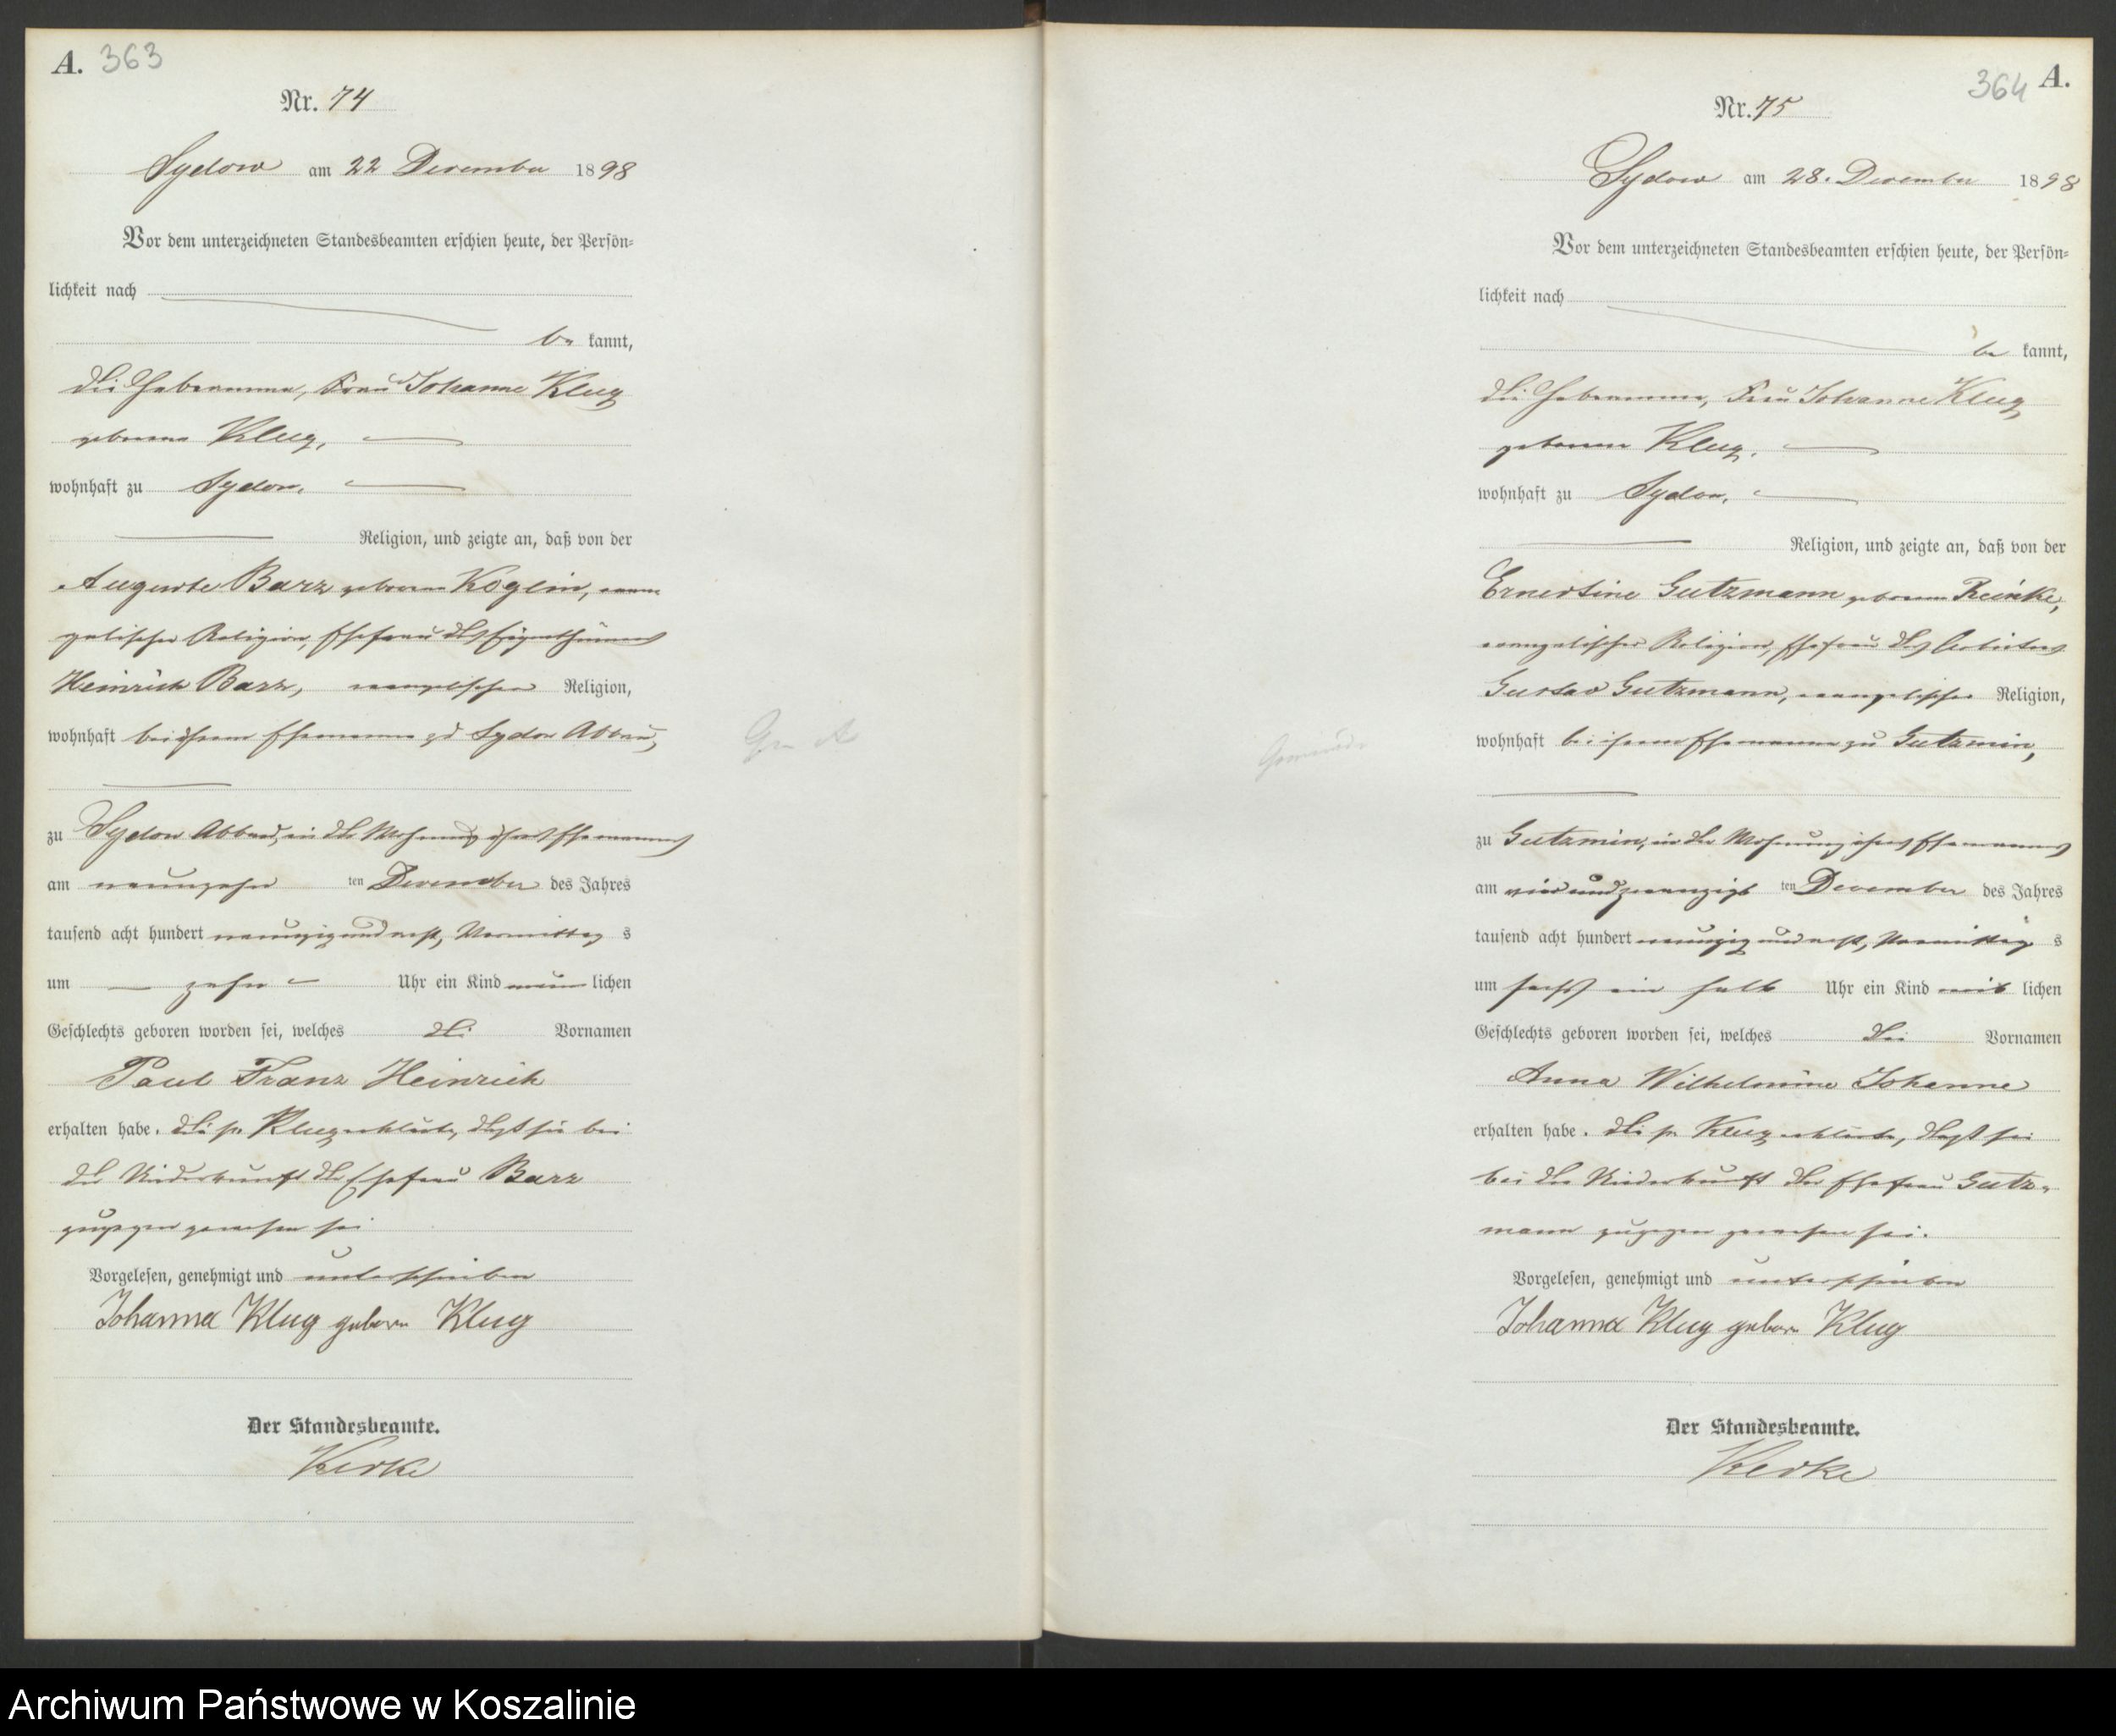 A. 363
Nr. 74
Sydow am 22 Dezember 1898
Vor dem unterzeichneten Standesbeamten erschien heute, der Persön-
lichkeit nach
be kannt,
die Hebamme, Frau Johanne Klug
geborene Klug,
wohnhaft zu Sydow,
Religion, und zeigte an, daß von der
Auguste Barz geborene Köglin, evan
gelischer Religion, Ehefrau des Eigenthümers
Heinrich Barz, evangelischer Religion,
wohnhaft bei ihrem Ehemanne zu Sydow Abbau,
zu Sydow Abbau, in der Wohnung ihres Ehemannes
am neunzehn ten Dezember des Jahres
tausend acht hundert neunzig und acht, Vormittag s
um zehn Uhr ein Kind männ lichen
Geschlechts geboren worden sei, welches die Vornamen
Paul Franz Heinrich
erhalten habe. Die p. Klug erklärte, daß sie bei
der Niederkunft der Ehefrau Barz
zugegen gewesen sei
Vorgelesen, genehmigt und unterschrieben
Johanna Klug geborn Klug
Der Standesbeamte.
364 A.
Nr. 75
Sydow am 28. Dezember 1898
Vor dem unterzeichneten Standesbeamten erschien heute, der Persön-
lichkeit nach
be kannt,
die Hebamme, Frau Johanne Klug,
geborene Klug,
wohnhaft zu Sydow,
Religion, und zeigte an, daß von der
Ernestine Gutzmann geborene Reinke,
evangelischer Religion, Ehefrau des Arbeiters
Gustav Gutzmann, evangelischer Religion,
wohnhaft bei ihrem Ehemanne zu Gutzmin,
zu Gutzmin, in der Wohnung ihres Ehemannes
am vierundzwanzigst ten Dezember des Jahres
tausend acht hundert neunzig und acht, Vormittag s
um sechs ein halb Uhr ein Kind weib lichen
Geschlechts geboren worden sei, welches die Vornamen
Anna Wilhelmine Johanne
erhalten habe. Die p. Klug erklärte, daß sie
bei der Niederkunft der Ehefrau Gutz-
mann zugegen gewesen sei.
Vorgelesen, genehmigt und unterschrieben
Johanna Klug geborn Klug
Der Standesbeamte.
Archiwum Państwowe w Koszalinie